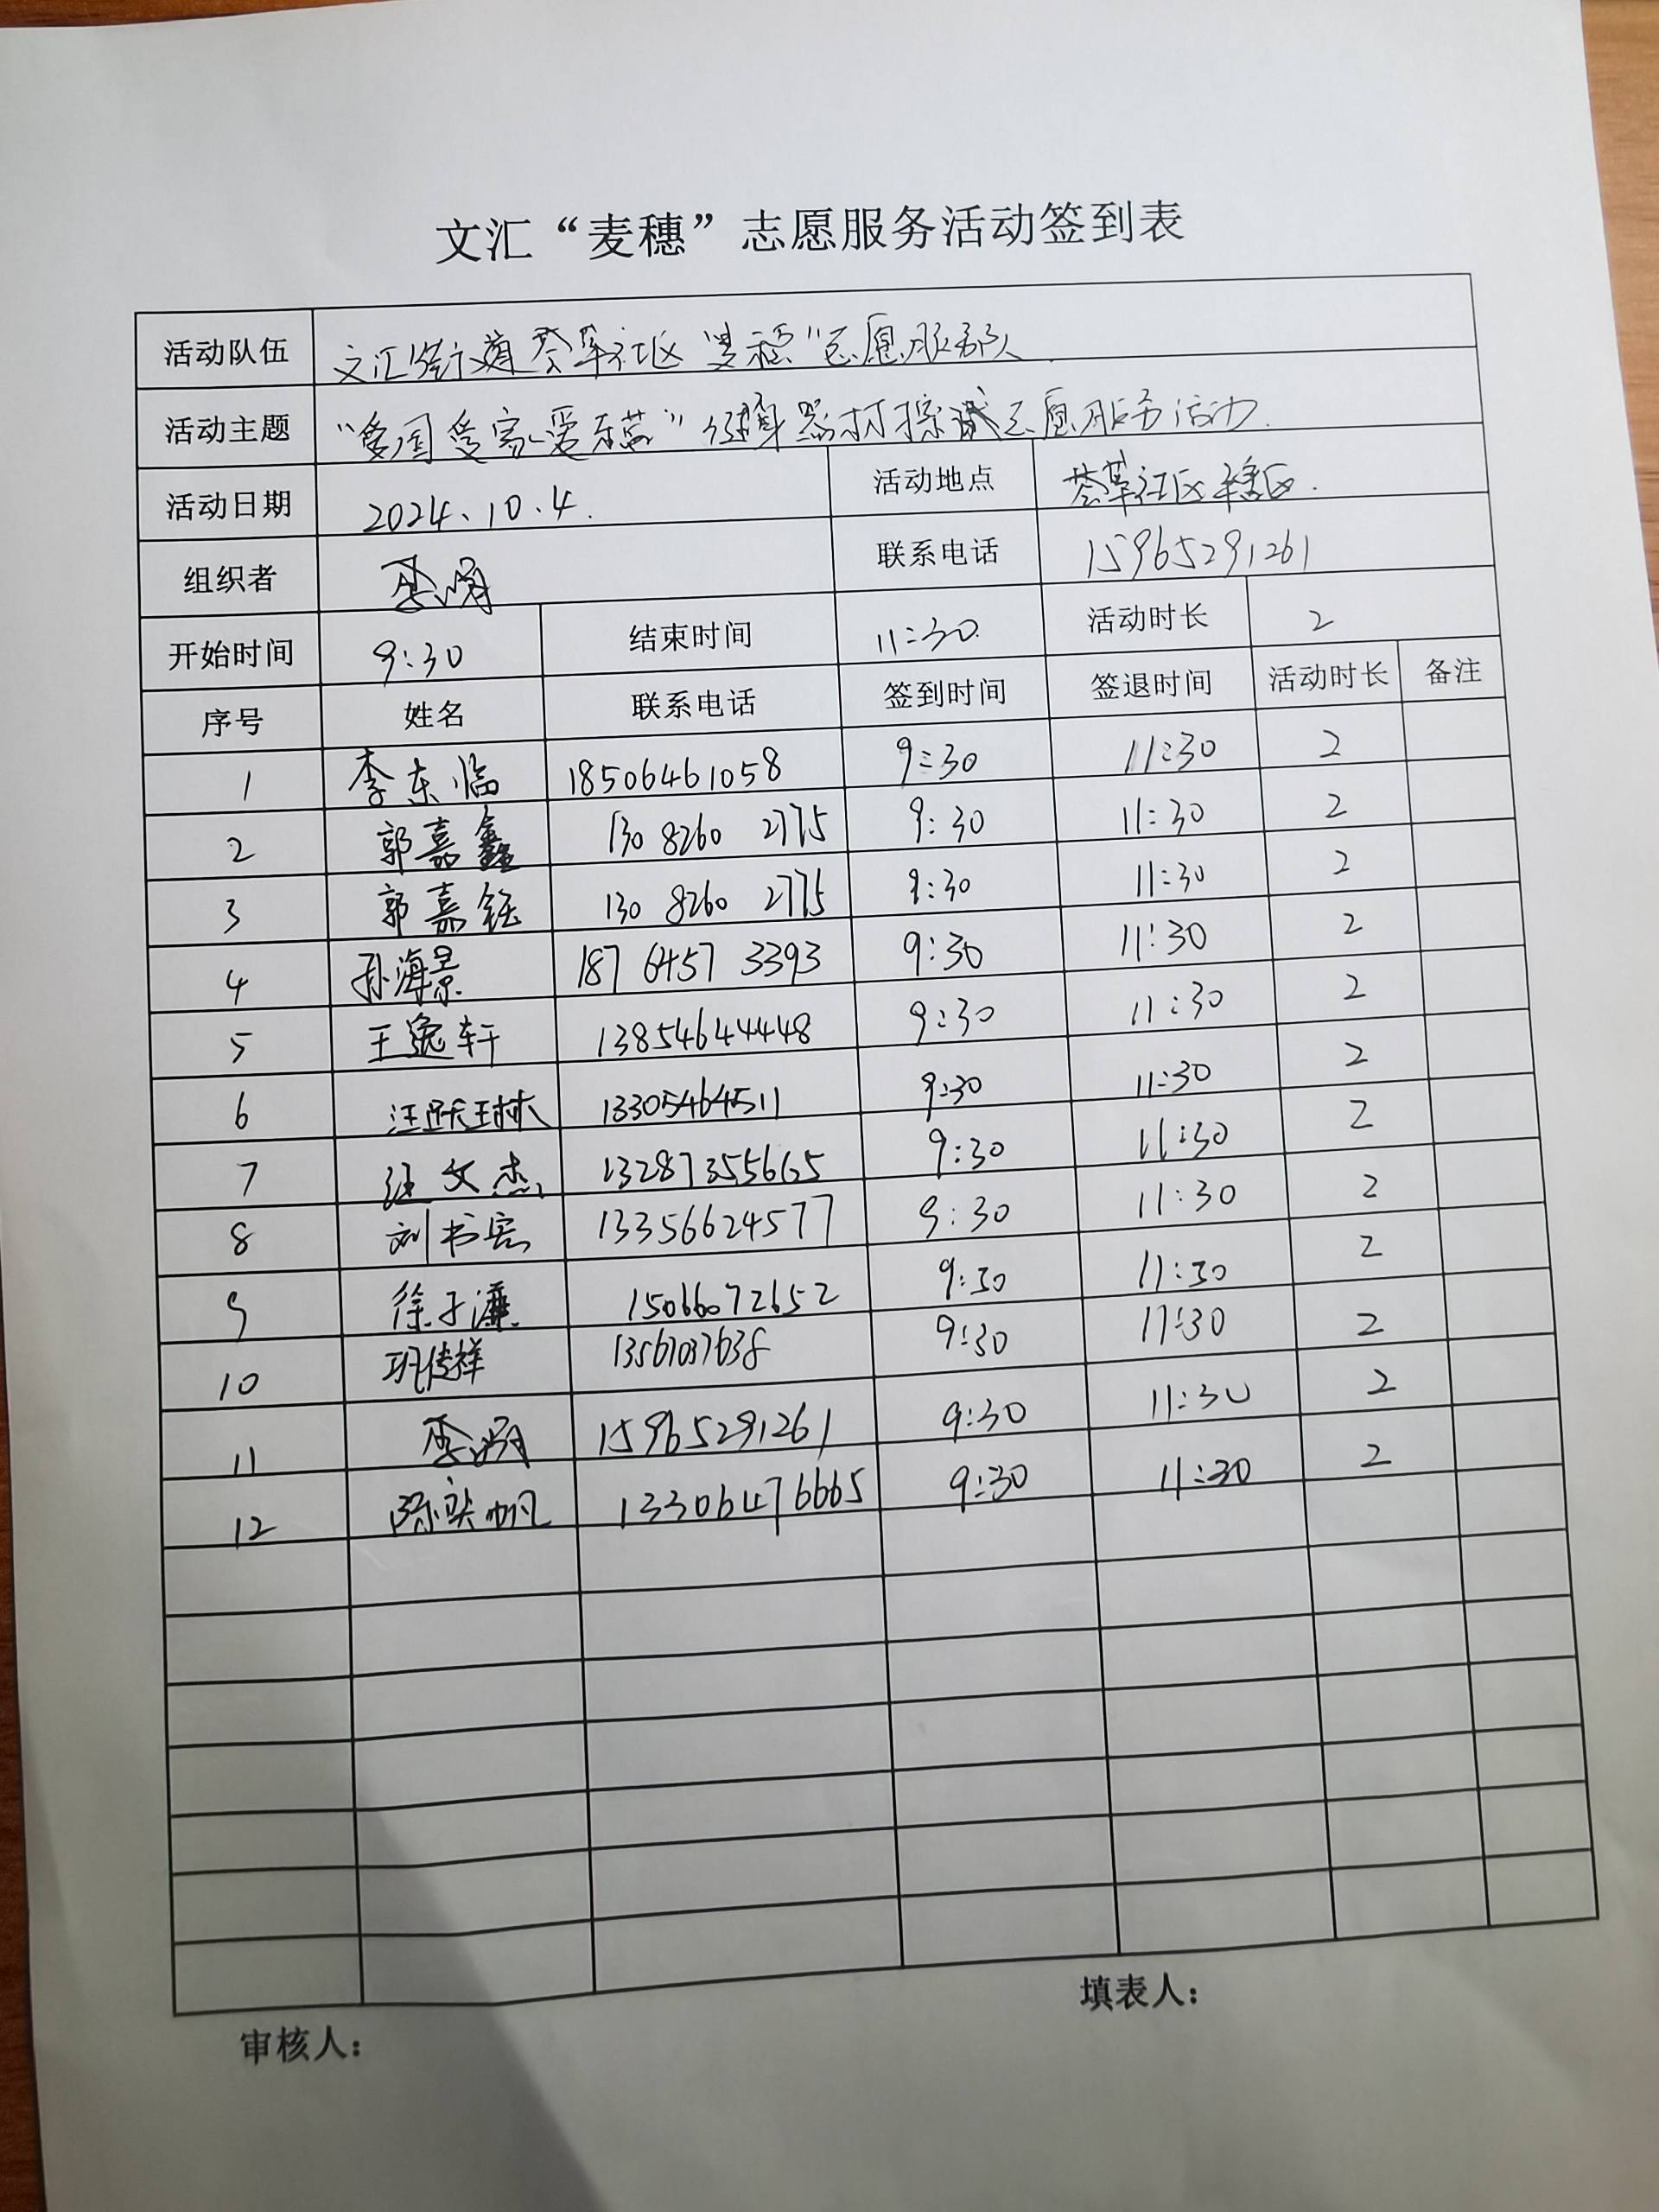 文汇“麦穗”志愿服务活动签到表
活动队伍 文汇街道荟萃社区“麦穗”志愿服务队
活动主题 “爱国爱家爱东营”健身器材擦拭志愿服务活动
活动日期 2024.10.4. 活动地点 荟萃社区辖区.
组织者 李 联系电话 15965291261
开始时间 9:30 结束时间 11:30 活动时长 2
序号 姓名 联系电话 签到时间 签退时间 活动时长 备注
1 李东临 18506461058 9:30 11:30 2
2 郭嘉鑫 130 8260 2775 9:30 11:30 2
3 郭嘉钰 130 8260 2775 9:30 11:30 2
4 孙海景 187 6457 3393 9:30 11:30 2
5 王逸轩 13854644448 9:30 11:30 2
6 汪跃琳 13305464511 9:30 11:30 2
7 汪文杰 13287355665 9:30 11:30 2
8 刘书宏 13356624577 9:30 11:30 2
9 徐子濂 15066072652 9:30 11:30 2
10 巩传祥 13561037638 9:30 11:30 2
11 李 15965291261 9:30 11:30 2
12 陈奕帆 13306476665 9:30 11:30 2
审核人： 填表人：